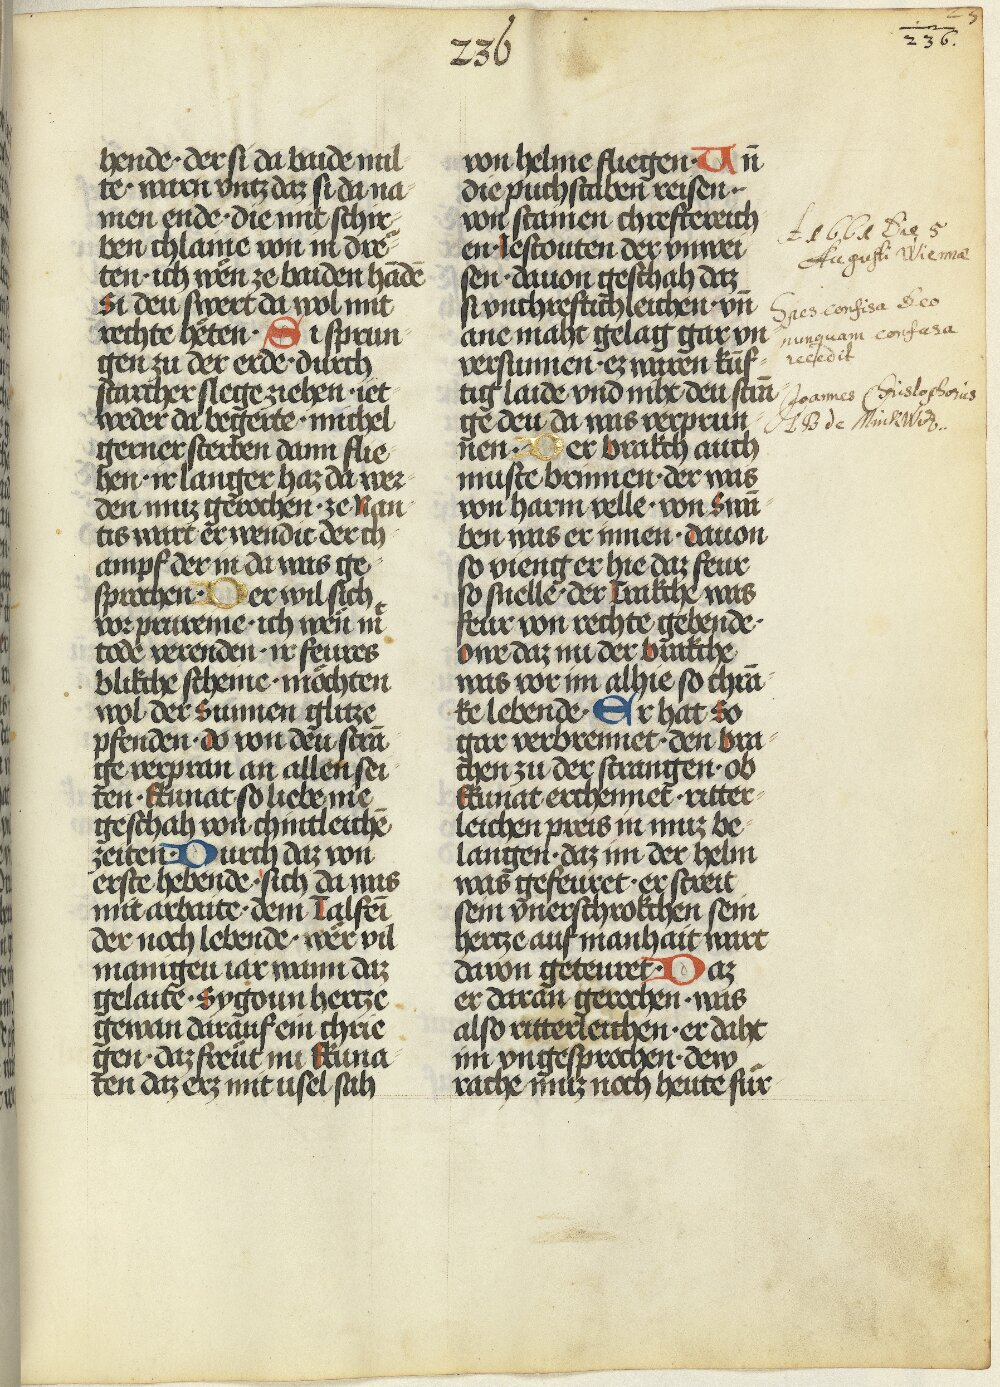 236
236.
hende · der si da baide mil
te · warn vntz daz si da na-
men ende · die mit schre-
ben chlaine von in dre-
ten · ich wen ze baiden hādē
Si deu swert da wol mit
rechte heten · Si sprun
gen zu der erde · durch
starcher slege ziehen · iet-
weder da begerte · michel
gerner sterben dann flie-
hen · ir langer haz da wer-
den muz gerochen · ze Nan-
tis wart er wendic der ch-
ampf der in da was ge-
sprochen · Der wil sich
vor preueme · ich wen
tode verenden · ir feures
blikche scheine · möchten
wol der Sunnen glitze
pfenden · do von deu stra-
ge verpran an allen sei-
ten · Ekunat so liebe nie
geschah von chintleichē
zeiten · Durch daz von
erste hebende · sich da was
mit arbaite · dem Talfeī
der noch lebende · wer vil
manigeu iar wann daz
gelaite · Sygoun hertze
gewan darauf ein chrie-
gen · daz freut nu Ekuna-
ten daz erz mit usel sah
von helme fliegen · Un̄
die puchstaben reisen ·
von stainen chrefterich
en · Iescouten der vnwei
sen · dauon geschah daz
si vnchreftichleichen · vn̄
ane maht gelag gar vn
versunnen · ez waren kūf-
tig laide vnd niht deu stiā
ge deu da was verprun-
nen · Der brakch auch
muste brinnen · der was
von harm velle · von Swī
ben was er innen · dauon
so vieng er hie daz feur
so snelle · der Trakche was
feur von rechte gebende ·
owe daz nu der brakche
was vor im alhie so chrā-
ke lebende · Er hat so
gar verbrennet · den bra-
chen zu der strangen · ob
Ekunat erchennet · ritter-
leichen preis in muz be-
langen · daz im der helm
was gefeuret · er streit
sein vnerschrokchen sein
hertze auf manhait wart
davon geteuret · Daz
er daran gerochen · was
also ritterleichen · er daht
im vngesprochen · dew
rache muz noch heute für-
A 1661 Die 5
Augusti Wiennæ
Spes confisa Deo
nunquam confusa
recedit
Joannes Christophorus
LB de MinkWitz.